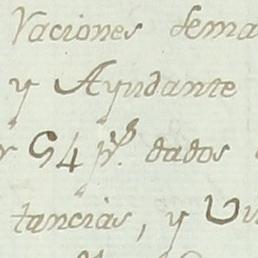 Vaciones sema
y Ayudante
54 p.s dados
tancias, y Vi